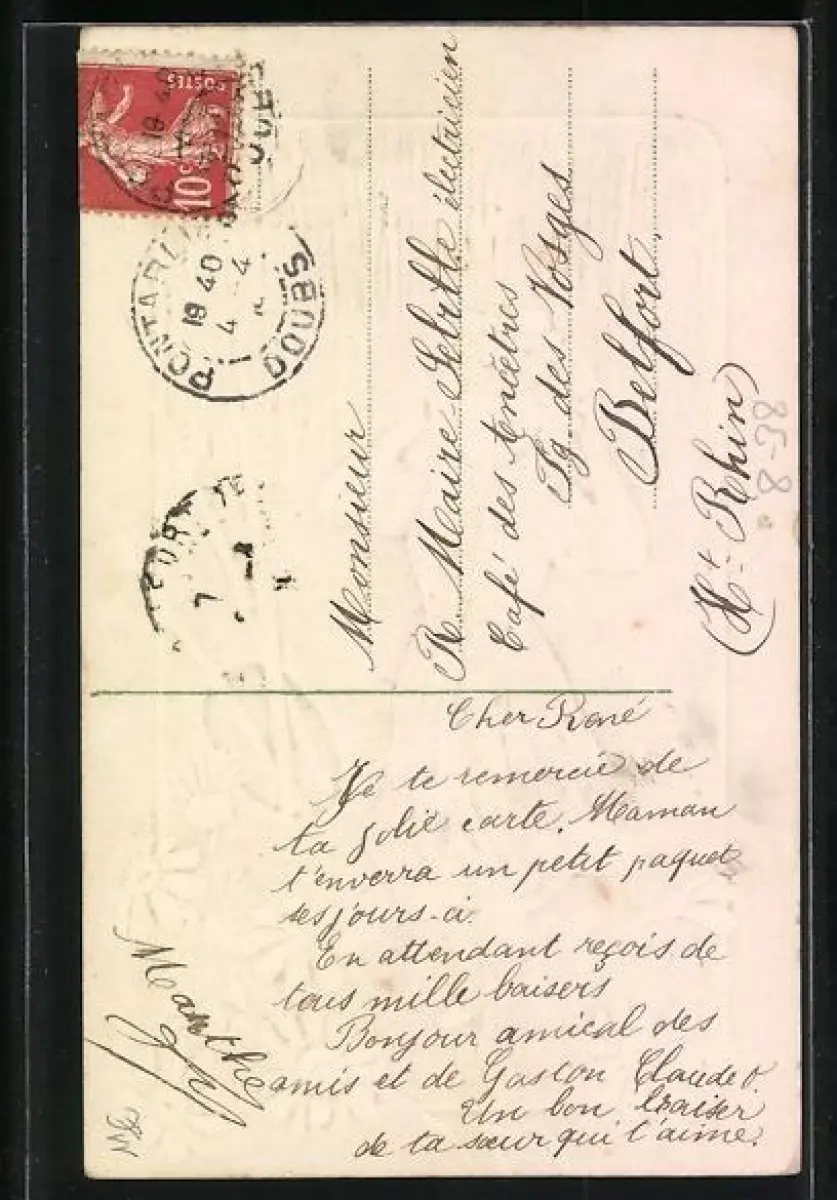 POSTES
10c
PONTARLIER
19 40
4 - 4
DOUBS
Monsieur
R. Maire-Sebille électricien
Café des Ancêtres
Fg. des Vosges
Belfort.
(Ht-Rhin)
8-58
Cher René
Je te remercie de
ta jolie carte. Maman
t'enverra un petit paquet
ses jours-ci.
En attendant reçois de
tous mille baisers
Bonjour amical des
amis et de Gaston Claude
Un bon baiser
de ta sœur qui t'aime.
Marthe